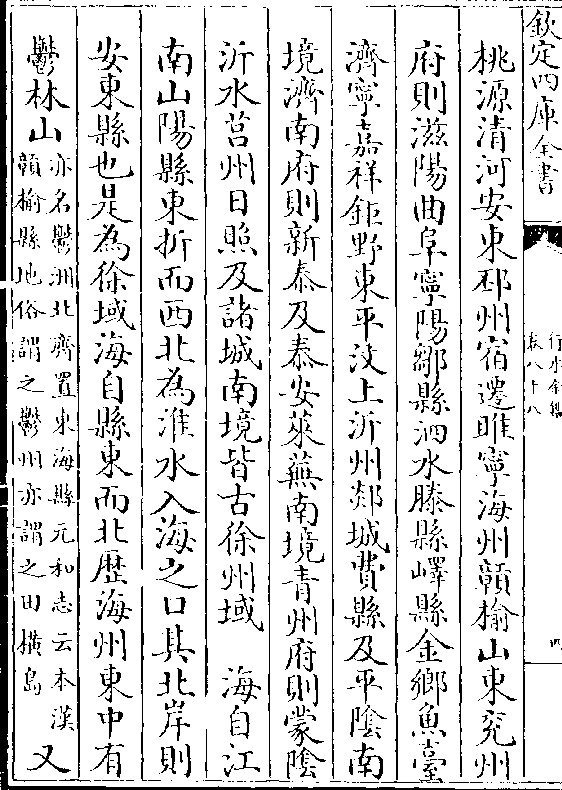 欽定四庫全書
行水金鑑
卷八十八
四
桃源清河安東邳州宿遷睢寧海州贛榆山東兖州
府則滋陽曲阜寧陽鄒縣泗水滕縣嶧縣金鄉魚臺
濟寧嘉祥鉅野東平汶上沂州郯城費縣及平陰南
境濟南府則新泰及泰安萊蕪南境青州府則蒙陰
沂水莒州日照及諸城南境皆古徐州域　海自江
南山陽縣東折而西北為淮水入海之口其北岸則
安東縣也是為徐域海自縣東而北歷海州東中有
鬱林山亦名鬱洲北齊置東海縣元和志云本漢贛榆縣地俗謂之鬱州亦謂之田横島又